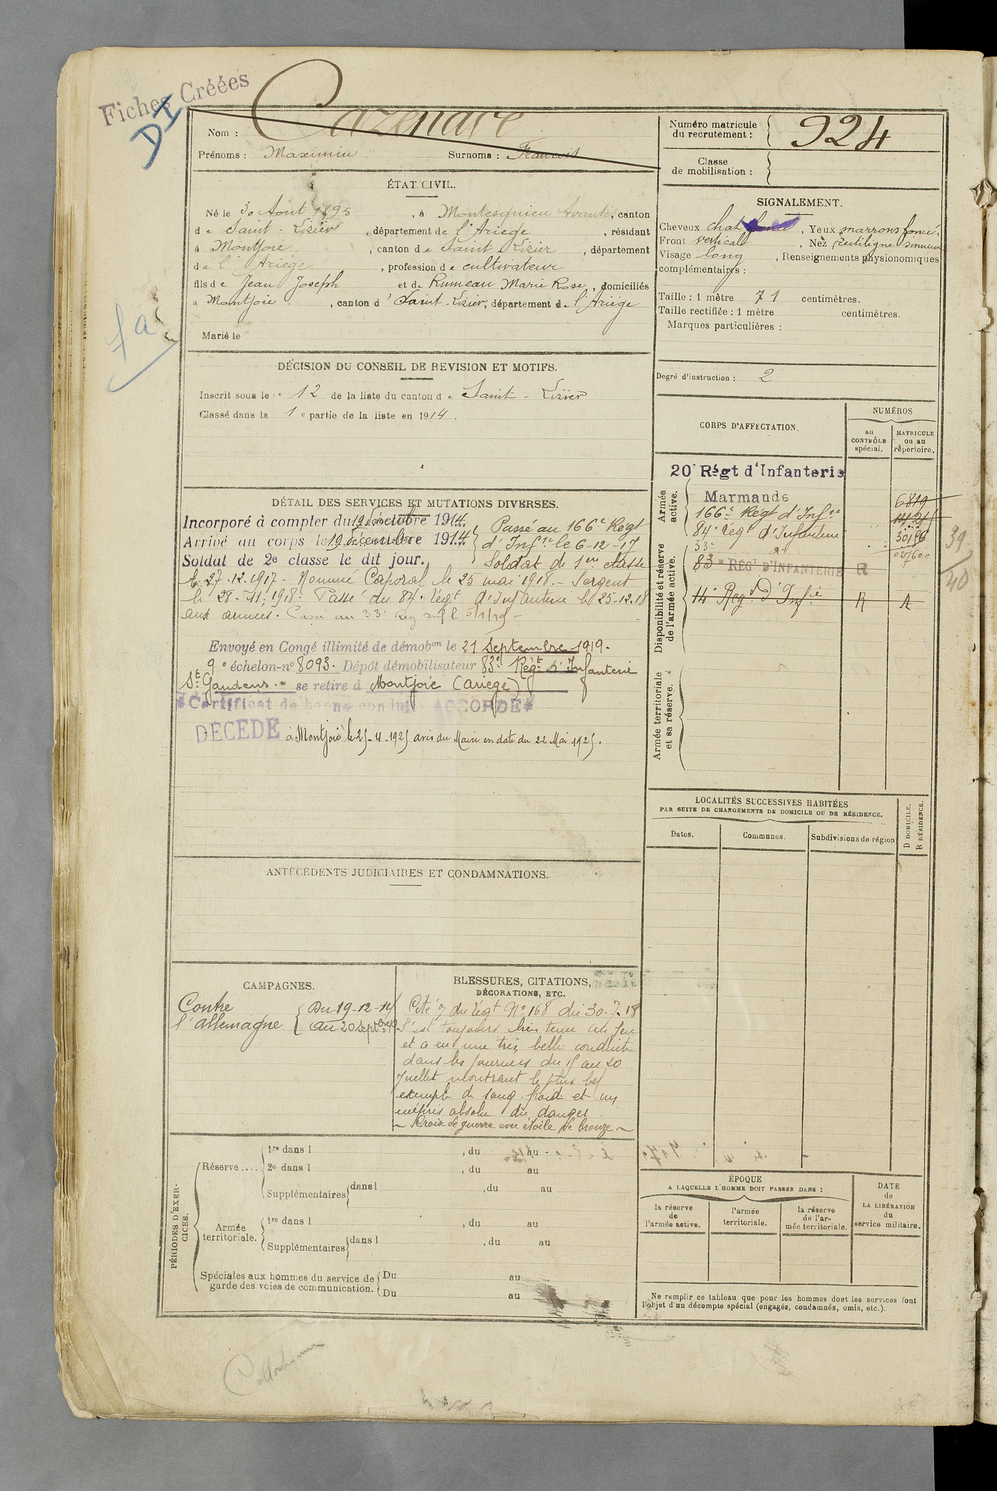 Fiches Créées
DI
Nom : Cazenave
Prénoms : Maximin Surnoms : François
Numéro matricule du recrutement : 924
Classe de mobilisation :
ÉTAT CIVIL.
Né le 30 Août 1895, à Montesquieu Avantès, canton
de Saint-Lizier, département de l'Ariège, résidant
à Montjoie, canton de Saint Lizier, département
de l'Ariège, profession de cultivateur
fils de Jean Joseph et de Rumeau Marie Rose, domiciliés
à Montjoie, canton d' Saint-Lizier, département de l'Ariège
Marié le
SIGNALEMENT.
Cheveux chat foncé, Yeux marrons foncé,
Front vertical, Nez rectiligne sinueux
Visage long, Renseignements physionomiques
complémentaires :
Taille : 1 mètre 71 centimètres.
Taille rectifiée : 1 mètre centimètres.
Marques particulières :
Degré d'instruction : 2
fa
DÉCISION DU CONSEIL DE REVISION ET MOTIFS.
Inscrit sous le n° 12 de la liste du canton de Saint-Lizier
Classé dans la 1e partie de la liste en 1914.
CORPS D'AFFECTATION.
NUMÉROS
au CONTRÔLE spécial.
MATRICULE ou au répertoire.
Armée active.
20e Régt d'Infanterie
Marmande
166e Régt d'Infrie
84e Régt d'Infanterie
33e
Disponibilité et réserve de l'armée active.
83e REGt D'INFANTERIE R
14e Régt d'Infie R
Armée territoriale et sa réserve.
39
40
DÉTAIL DES SERVICES ET MUTATIONS DIVERSES.
Incorporé à compter du 19 décembre 1914.
Arrivé au corps le 19 décembre 1914.
Soldat de 2e classe le dit jour.
Passé au 166e Régt
d'Infie le 6-12-17
Soldat de 1ere classe
le 27.12.1917 - Nommé Caporal le 25 mai 1918 - Sergent
le 28-11-1918. Passé du 84e régt d'Infanterie le 25-12-18
aux armées.
Envoyé en Congé illimité de démobon le 21 Septembre 1919.
9e échelon-n° 8093. Dépôt démobilisateur 83e Régt d'Infanterie
St Gaudens - se retire à Montjoie (Ariège)
Certificat de bonne conduite ACCORDÉ
DÉCÉDÉ à Montjoie le 25-4-1925 avis du Maire en date du 22 Mai 1925.
LOCALITÉS SUCCESSIVES HABITÉES
PAR SUITE DE CHANGEMENTS DE DOMICILE OU DE RÉSIDENCE.
Dates.
Communes.
Subdivisions de région
D DOMICILE.
R RÉSIDENCE.
ANTÉCÉDENTS JUDICIAIRES ET CONDAMNATIONS.
CAMPAGNES.
Contre l'allemagne
Du 19-12-14
au 20 septbre 19
BLESSURES, CITATIONS,
DÉCORATIONS, ETC.
Cité O/ du régt N° 168 du 30.7.18
S'est toujours très tenu au feu
et a eu une très belle conduite
dans les journées du 18 au 20
juillet montrant le plus bel
exemple de sang-froid et un
mépris absolu du danger
- Croix de guerre avec étoile de bronze -
PÉRIODES D'EXERCICES.
Réserve....
1re dans l , du au
2e dans l , du au
Supplémentaires dans l , du au
Armée territoriale.
1re dans l , du au
Supplémentaires dans l , du au
Spéciales aux hommes du service de garde des voies de communication.
Du au
Du au
ÉPOQUE
A LAQUELLE L'HOMME DOIT PASSER DANS :
la réserve de l'armée active.
l'armée territoriale.
la réserve de l'armée territoriale.
DATE de LA LIBÉRATION du service militaire.
Ne remplir ce tableau que pour les hommes dont les services font
l'objet d'un décompte spécial (engagés, condamnés, omis, etc.).